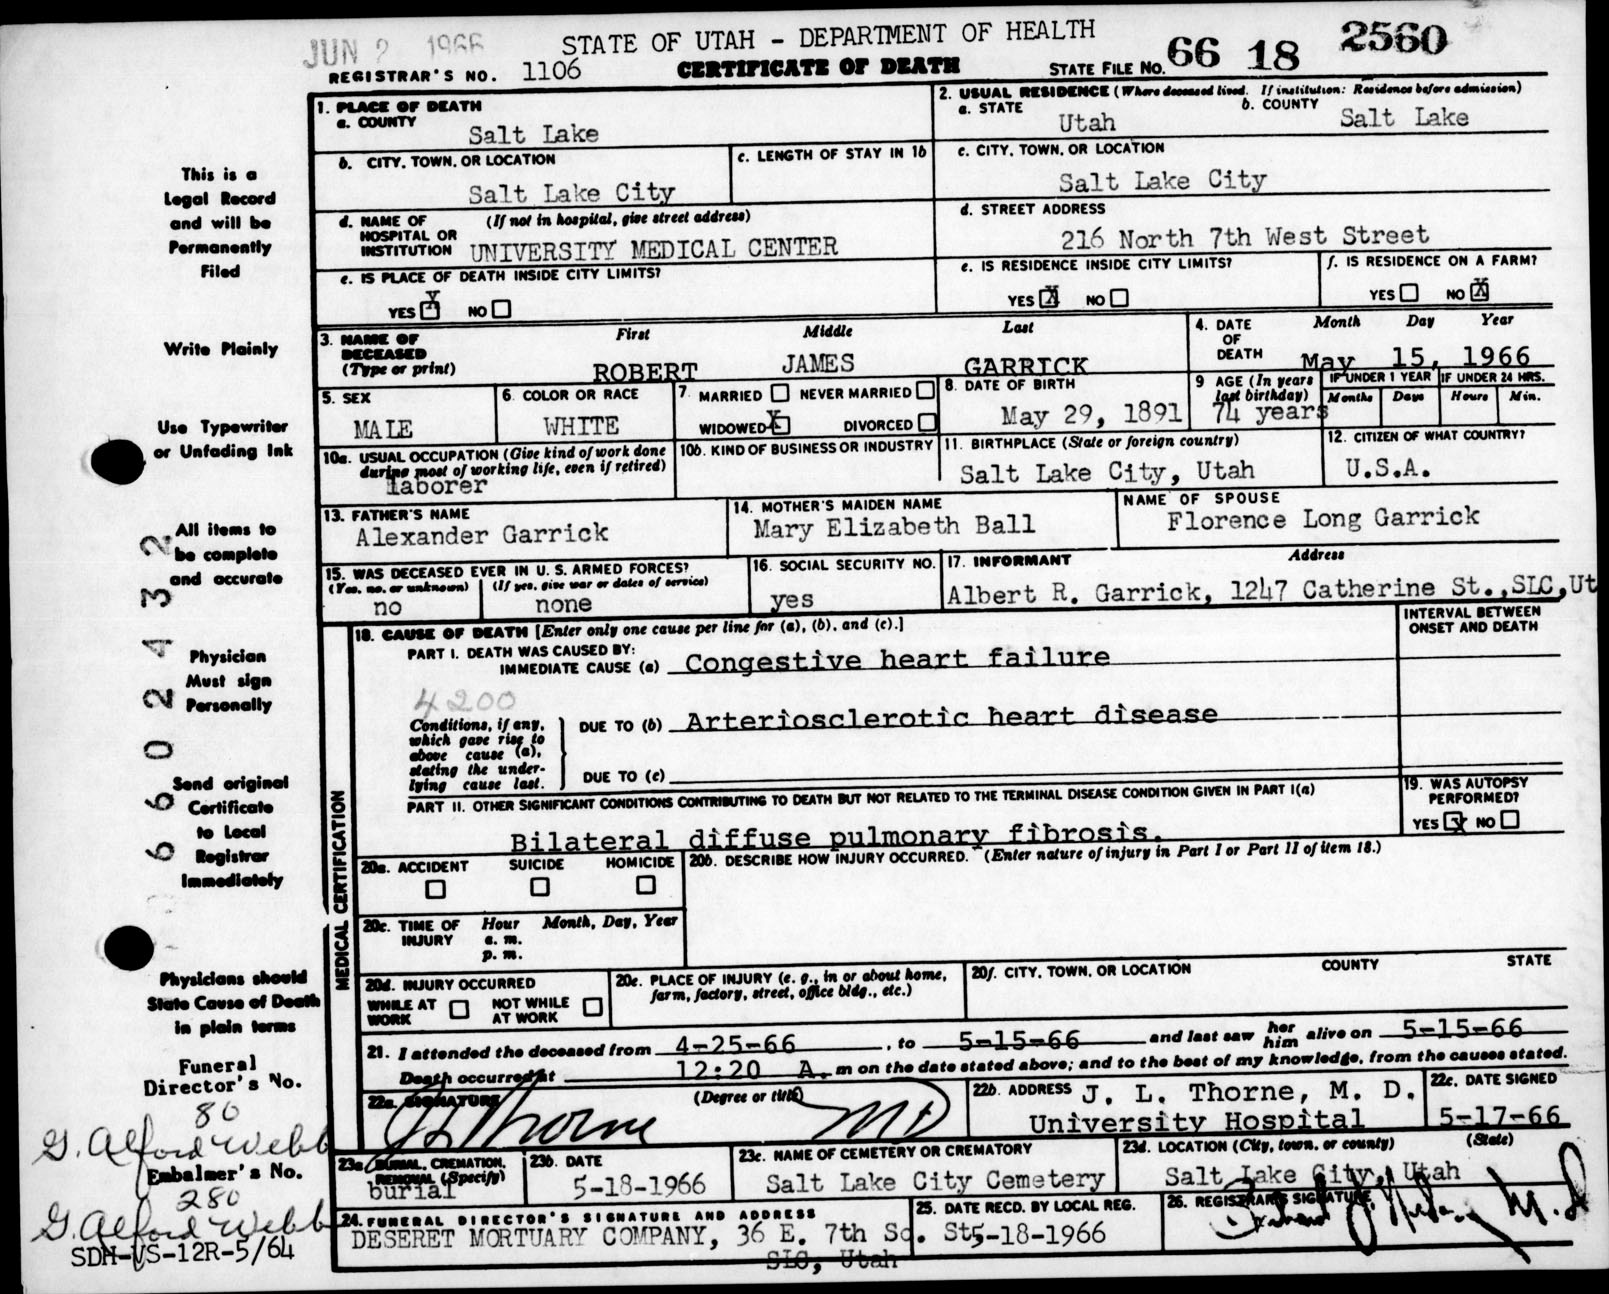 JUN 2 1966
STATE OF UTAH - DEPARTMENT OF HEALTH
REGISTRAR'S NO. 1106 CERTIFICATE OF DEATH STATE FILE NO. 66 18 2560
1. PLACE OF DEATH
a. COUNTY
Salt Lake
2. USUAL RESIDENCE (Where deceased lived. If institution: Residence before admission)
a. STATE Utah b. COUNTY Salt Lake
b. CITY, TOWN, OR LOCATION
Salt Lake City
c. LENGTH OF STAY IN 1b
c. CITY, TOWN, OR LOCATION
Salt Lake City
d. NAME OF HOSPITAL OR INSTITUTION (If not in hospital, give street address)
UNIVERSITY MEDICAL CENTER
d. STREET ADDRESS
216 North 7th West Street
e. IS PLACE OF DEATH INSIDE CITY LIMITS?
YES X NO
e. IS RESIDENCE INSIDE CITY LIMITS?
YES X NO
f. IS RESIDENCE ON A FARM?
YES NO X
3. NAME OF DECEASED (Type or print)
First Middle Last
ROBERT JAMES GARRICK
4. DATE OF DEATH Month Day Year
May 15, 1966
5. SEX
MALE
6. COLOR OR RACE
WHITE
7. MARRIED NEVER MARRIED
WIDOWED X DIVORCED
8. DATE OF BIRTH
May 29, 1891
9 AGE (In years last birthday)
74 years
IF UNDER 1 YEAR IF UNDER 24 HRS.
Months Days Hours Min.
10a. USUAL OCCUPATION (Give kind of work done during most of working life, even if retired)
laborer
10b. KIND OF BUSINESS OR INDUSTRY
11. BIRTHPLACE (State or foreign country)
Salt Lake City, Utah
12. CITIZEN OF WHAT COUNTRY?
U.S.A.
13. FATHER'S NAME
Alexander Garrick
14. MOTHER'S MAIDEN NAME
Mary Elizabeth Ball
NAME OF SPOUSE
Florence Long Garrick
15. WAS DECEASED EVER IN U. S. ARMED FORCES?
(Yes, no, or unknown) (If yes, give war or dates of service)
no none
16. SOCIAL SECURITY NO.
yes
17. INFORMANT Address
Albert R. Garrick, 1247 Catherine St.,SLC,Ut
MEDICAL CERTIFICATION
18. CAUSE OF DEATH [Enter only one cause per line for (a), (b), and (c).]
INTERVAL BETWEEN ONSET AND DEATH
PART I. DEATH WAS CAUSED BY:
IMMEDIATE CAUSE (a) Congestive heart failure
4200
Conditions, if any, which gave rise to above cause (a), stating the underlying cause last.
DUE TO (b) Arteriosclerotic heart disease
DUE TO (c)
PART II. OTHER SIGNIFICANT CONDITIONS CONTRIBUTING TO DEATH BUT NOT RELATED TO THE TERMINAL DISEASE CONDITION GIVEN IN PART I(a)
Bilateral diffuse pulmonary fibrosis.
19. WAS AUTOPSY PERFORMED?
YES X NO
20a. ACCIDENT SUICIDE HOMICIDE
20b. DESCRIBE HOW INJURY OCCURRED. (Enter nature of injury in Part I or Part II of item 18.)
20c. TIME OF INJURY Hour Month, Day, Year
a. m.
p. m.
20d. INJURY OCCURRED
WHILE AT WORK NOT WHILE AT WORK
20e. PLACE OF INJURY (e. g., in or about home, farm, factory, street, office bldg., etc.)
20f. CITY, TOWN, OR LOCATION COUNTY STATE
21. I attended the deceased from 4-25-66, to 5-15-66 and last saw her him alive on 5-15-66
Death occurred at 12:20 A. m on the date stated above; and to the best of my knowledge, from the causes stated.
22a. SIGNATURE (Degree or title)
J L Thorne MD
22b. ADDRESS J. L. Thorne, M. D.
University Hospital
22c. DATE SIGNED
5-17-66
23a. BURIAL, CREMATION, REMOVAL (Specify)
burial
23b. DATE
5-18-1966
23c. NAME OF CEMETERY OR CREMATORY
Salt Lake City Cemetery
23d. LOCATION (City, town, or county) (State)
Salt Lake City, Utah
24. FUNERAL DIRECTOR'S SIGNATURE AND ADDRESS
DESERET MORTUARY COMPANY, 36 E. 7th So. St.
SLC, Utah
25. DATE RECD. BY LOCAL REG.
5-18-1966
26. REGISTRAR'S SIGNATURE
M.D
This is a
Legal Record
and will be
Permanently
Filed
Write Plainly
Use Typewriter
or Unfading Ink
All items to
be complete
and accurate
Physician
Must sign
Personally
Send original
Certificate
to Local
Registrar
Immediately
66 024 332
Physicians should
State Cause of Death
in plain terms
Funeral
Director's No.
80
G. Alford Webb
Embalmer's No.
280
G. Alford Webb
SDH-VS-12R-5/64